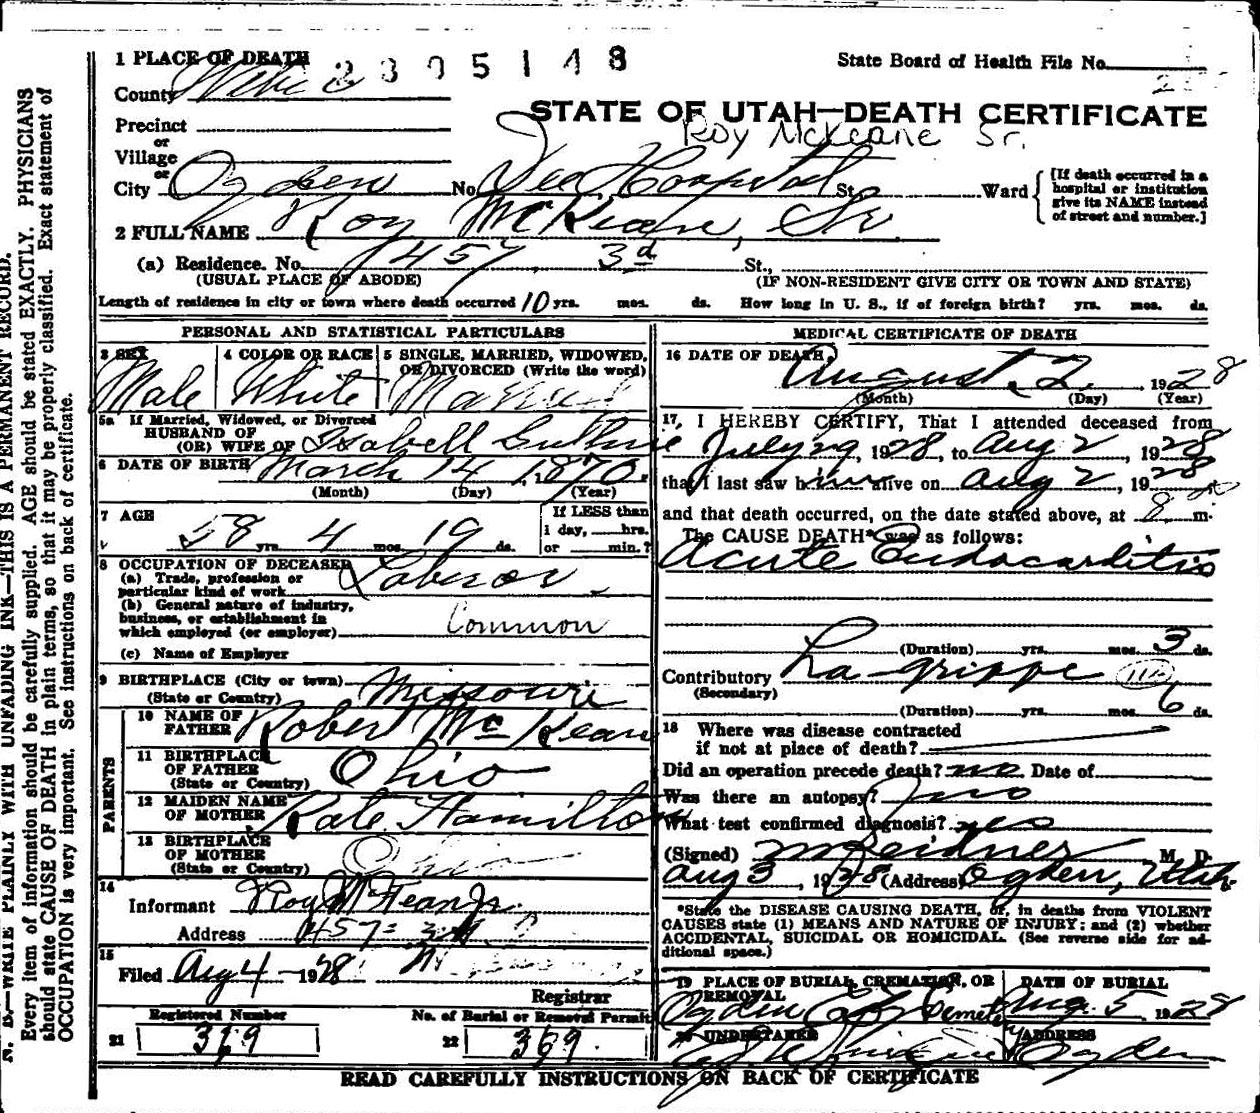 1 PLACE OF DEATH
2305148
State Board of Health File No.
County Weber
STATE OF UTAH—DEATH CERTIFICATE
Precinct
Roy McKeane Sr.
or
Village
or
City Ogden No. Dee Hospital St. Ward
[If death occurred in a
hospital or institution
give its NAME instead
of street and number.]
2 FULL NAME Roy McKean, Sr.
(a) Residence. No. 457 3d St.,
(USUAL PLACE OF ABODE) (IF NON-RESIDENT GIVE CITY OR TOWN AND STATE)
Length of residence in city or town where death occurred 10 yrs. mos. ds. How long in U. S., if of foreign birth? yrs. mos. ds.
PERSONAL AND STATISTICAL PARTICULARS
3 SEX
Male
4 COLOR OR RACE
White
5 SINGLE, MARRIED, WIDOWED,
OR DIVORCED (Write the word)
Married
5a If Married, Widowed, or Divorced
HUSBAND OF
(OR) WIFE OF Isabell Guthrie
6 DATE OF BIRTH March 14, 1870.
(Month) (Day) (Year)
7 AGE
58 yrs. 4 mos. 19 ds.
If LESS than
1 day, hrs.
or min.?
8 OCCUPATION OF DECEASED
(a) Trade, profession or
particular kind of work Laborer
(b) General nature of industry,
business, or establishment in
which employed (or employer) Common
(c) Name of Employer
9 BIRTHPLACE (City or town)
(State or Country) Missouri
PARENTS
10 NAME OF
FATHER Robert McKean
11 BIRTHPLACE
OF FATHER
(State or Country) Ohio
12 MAIDEN NAME
OF MOTHER Kate Hamilton
13 BIRTHPLACE
OF MOTHER
(State or Country) Ohio
14
Informant Roy McKean Jr.
Address 457 - 3rd
15
Filed Aug 4 - 1928
Registrar
Registered Number
21 369
No. of Burial or Removal Permit
22 369.
MEDICAL CERTIFICATE OF DEATH
16 DATE OF DEATH
August 2, 1928
(Month) (Day) (Year)
17, I HEREBY CERTIFY, That I attended deceased from
July 29, 1928, to Aug 2, 1928
that I last saw him alive on Aug 2, 1928
and that death occurred, on the date stated above, at 8 m.
The CAUSE DEATH* was as follows:
Acute Endocarditis
(Duration) yrs. mos. 3 ds.
Contributory La-grippe 11a
(Secondary)
(Duration) yrs. mos. 6 ds.
18 Where was disease contracted
if not at place of death?
Did an operation precede death? no Date of
Was there an autopsy? no
What test confirmed diagnosis? yes
(Signed) M. D.
Aug 3, 1928 (Address) Ogden, Utah
*State the DISEASE CAUSING DEATH, or, in deaths from VIOLENT
CAUSES state (1) MEANS AND NATURE OF INJURY; and (2) whether
ACCIDENTAL, SUICIDAL OR HOMICIDAL. (See reverse side for ad-
ditional space.)
19 PLACE OF BURIAL, CREMATION, OR
REMOVAL
Ogden City Cemetery
DATE OF BURIAL
Aug. 5 1928
20 UNDERTAKER
ADDRESS
Ogden
READ CAREFULLY INSTRUCTIONS ON BACK OF CERTIFICATE
N. B.—WRITE PLAINLY WITH UNFADING INK—THIS IS A PERMANENT RECORD.
Every item of information should be carefully supplied. AGE should be stated EXACTLY. PHYSICIANS
should state CAUSE OF DEATH in plain terms, so that it may be properly classified. Exact statement of
OCCUPATION is very important. See instructions on back of certificate.